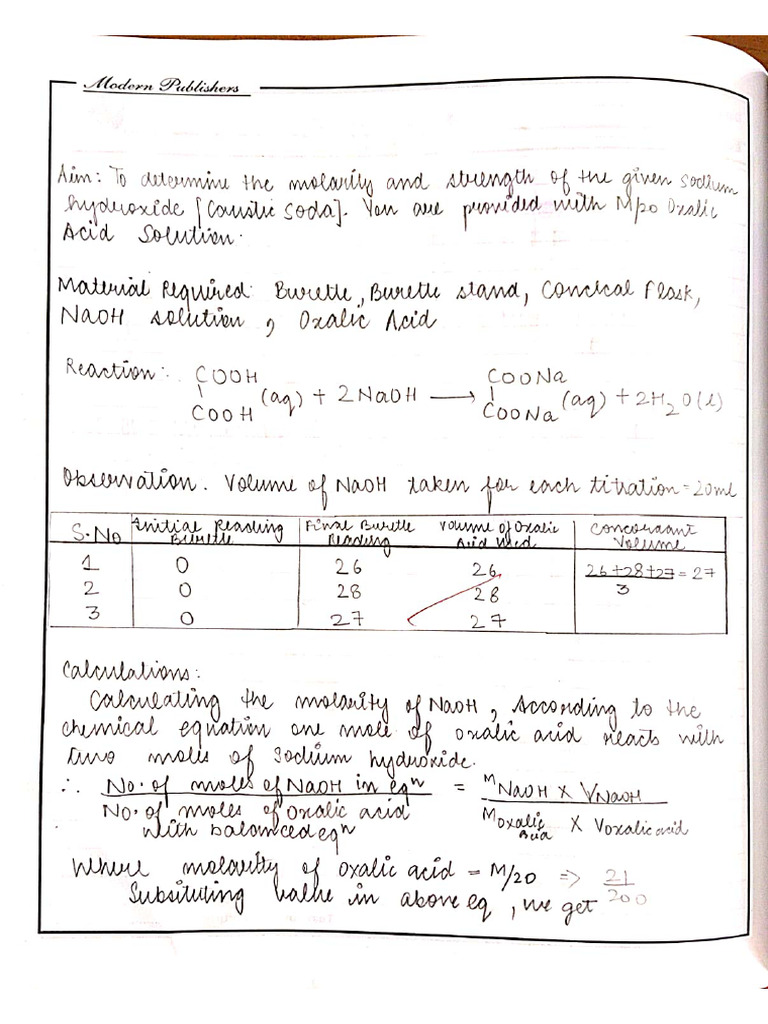 Modern Publishers
Aim: To determine the molarity and strength of the given sodium
hydroxide [Caustic soda]. You are provided with M/20 Oxalic
Acid Solution.
Material Required: Burette, Burette stand, Concical Flask,
NaOH solution, Oxalic Acid
Reaction: COOH | COOH (aq) + 2NaOH ⟶ COONa | COONa (aq) + 2H₂O(l)
Observation. Volume of NaOH taken for each titration = 20ml
S.No Initial Reading Burette Final Burette Reading Volume of Oxalic Acid Used Concordant Volume
1 0 26 26 26+28+27/3 = 27
2 0 28 28
3 0 27 27
Calculations:
Calculating the molarity of NaOH, According to the
chemical equation one mole of oxalic acid reacts with
two moles of sodium hydroxide.
∴ No. of moles of NaOH in eqⁿ = M NaOH X V NaOH
No. of moles of oxalic acid M oxalic Acid X V oxalic acid
with balanced eqⁿ
Where molarity of oxalic acid = M/20 => 21/200
Subsituting value in above eq, we get